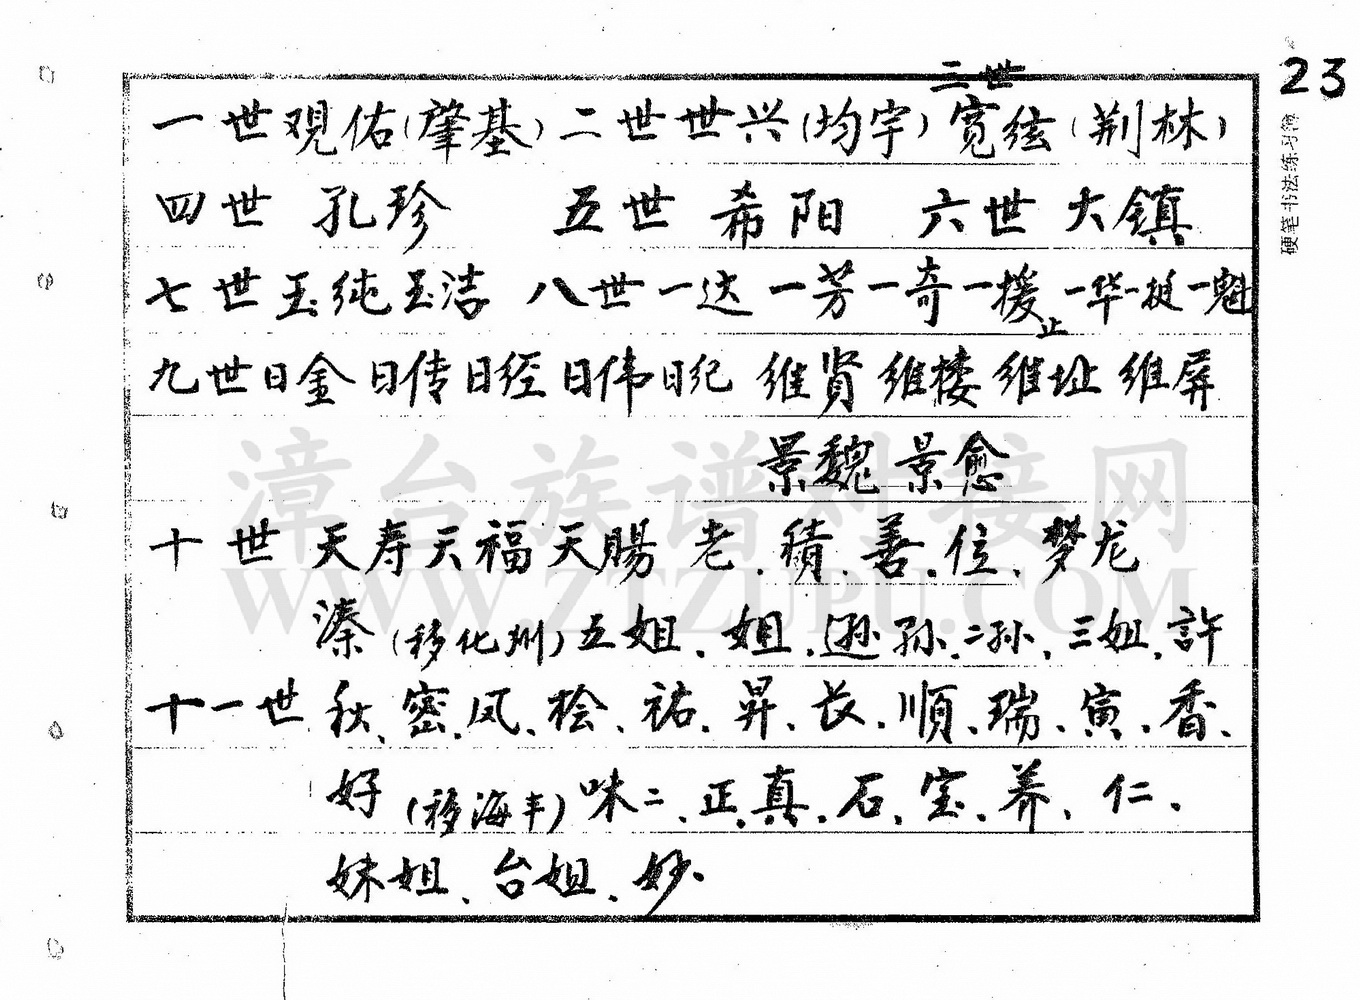 23
硬笔书法练习簿
三世
一世观佑(肇基)二世世兴(均宇)宽绉(荆林)
四世 孔珍 五世 希阳 六世 大鎮
七世玉纯玉洁 八世一达一芳一奇一援一华一挺一魁
止
九世日金日传日经日伟日纪 维贤维楼维址维屏
景魏景愈
漳台族谱对接网
十世天寿天福天賜老.積.善.位.梦龙
WWW.ZTZUPU.COM
溱(移化州)五姐.姐.逊孙.二孙.三姐.許
十一世秋.密.凤.桧.祐.昇.长.順.瑞.寅.香.
好(移海丰)味二.正.真.石.宝.养.仁.
妹姐.台姐.妙.